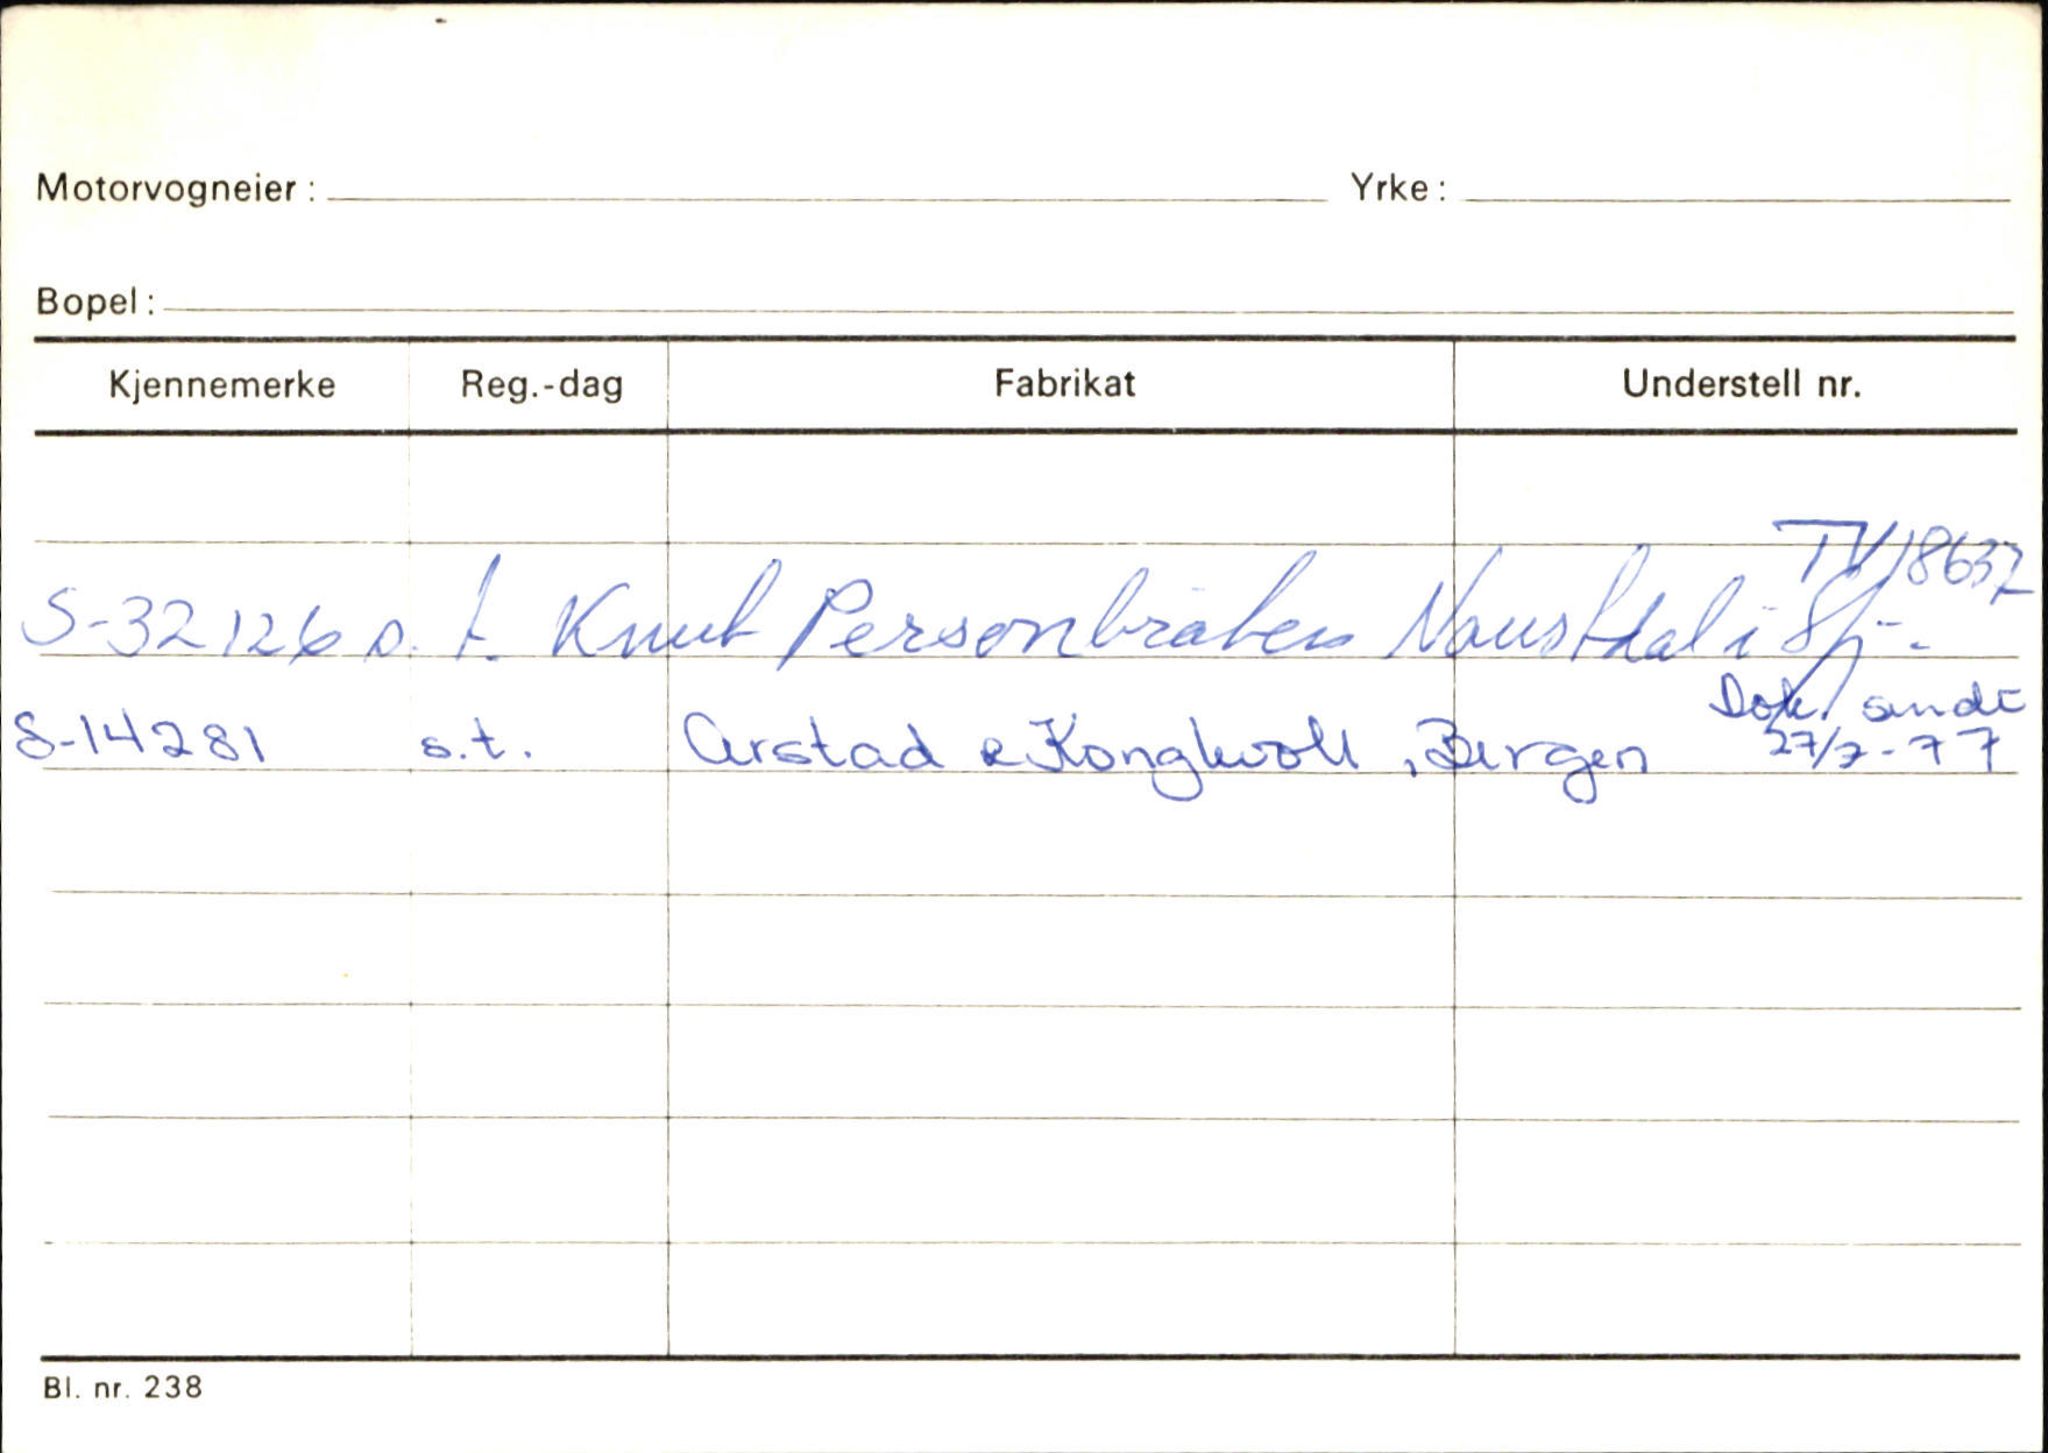 Motorvogneier: Yrke:
Bopel:
Kjennemerke Reg.-dag Fabrikat Understell nr.
TV18637
S-32126 s. t. Knut Personbråten Naustdal i Sfj.
Dok. sendt
S-14281 s.t. Årstad & Kongkvoll, Bergen 27/7-77
Bl. nr. 238